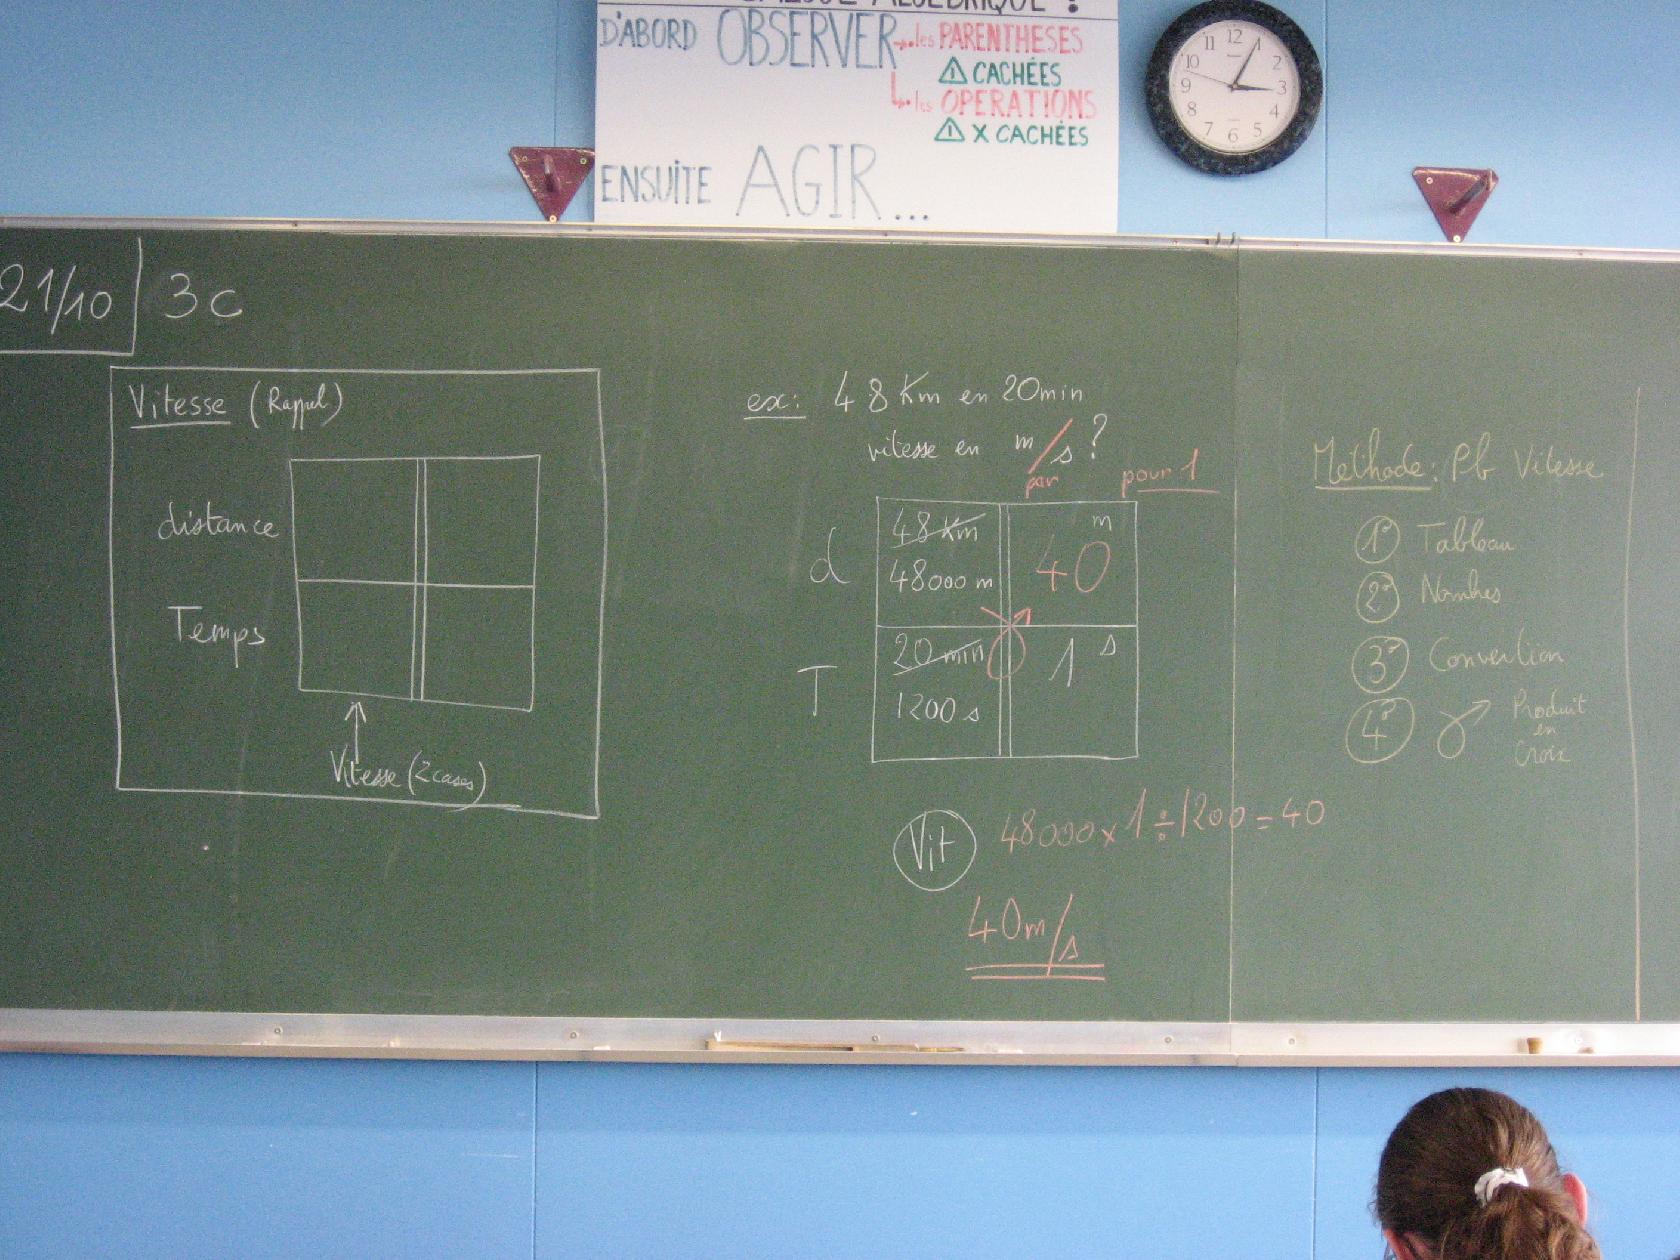 CALCUL ALGÉBRIQUE :
D'ABORD OBSERVER → les PARENTHESES
⚠ CACHÉES
↳ les OPERATIONS
⚠ X CACHÉES
ENSUITE AGIR...
12
1
2
3
4
5
6
7
8
9
10
11
21/10 3c
Vitesse (Rappel)
distance
Temps
Vitesse (2 cases)
ex: 48 Km en 20min
vitesse en m/s ?
par pour 1
d 48 Km m
48000 m 40
T 20 min 1 s
1200 s
Vit 48000 x 1 ÷ 1200 = 40
40 m/s
Methode : Pb Vitesse
1° Tableau
2° Nombres
3° Convertion
4° Produit
en
Croix